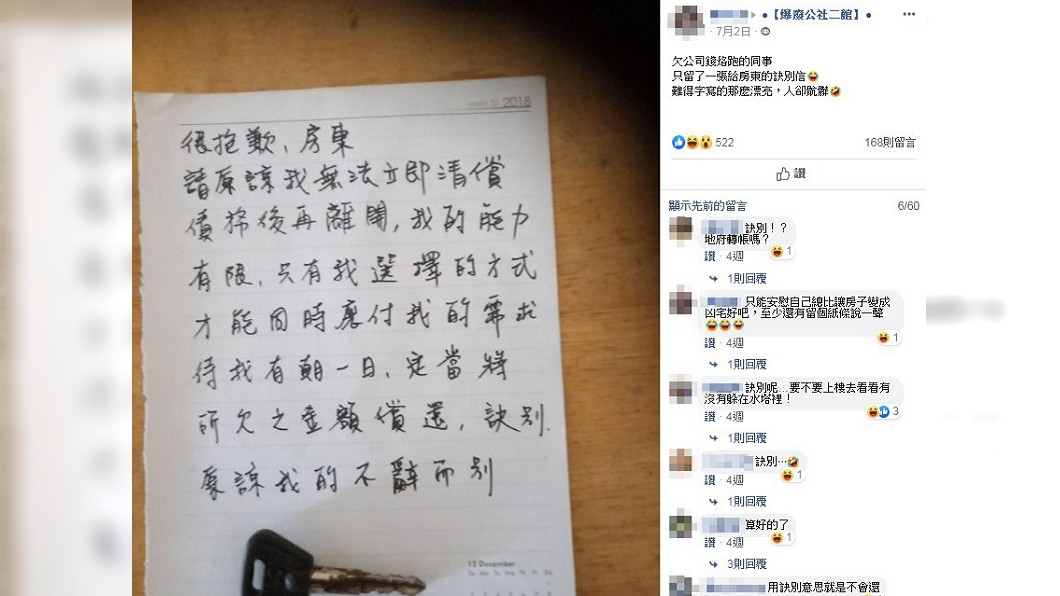 week 52 2018
很抱歉、房東
請原諒我無法立即清償
債務後再離開,我的能力
有限,只有我選擇的方式
才能同時應付我的需求
待我有朝一日、定當將
所欠之金額償還,訣別.
原諒我的不辭而別
12 December
Su Mo Tu We Th Fr Sa
•【爆廢公社二館】•
7月2日
欠公司錢烙跑的同事
只留了一張給房東的訣別信🤣
難得字寫的那麼漂亮,人卻骯髒🤣
522
168則留言
讚
顯示先前的留言
6/60
訣別!?
地府轉帳嗎?
1
讚 · 4週
1則回覆
只能安慰自己總比讓房子變成
凶宅好吧,至少還有留個紙條說一聲
😆😆😆
1
讚 · 4週
1則回覆
訣別呢...要不要上樓去看看有
沒有躲在水塔裡!
3
讚 · 4週
1則回覆
訣別…🤣
1
讚 · 4週
1則回覆
算好的了
1
讚 · 4週
3則回覆
用訣別意思就是不會還